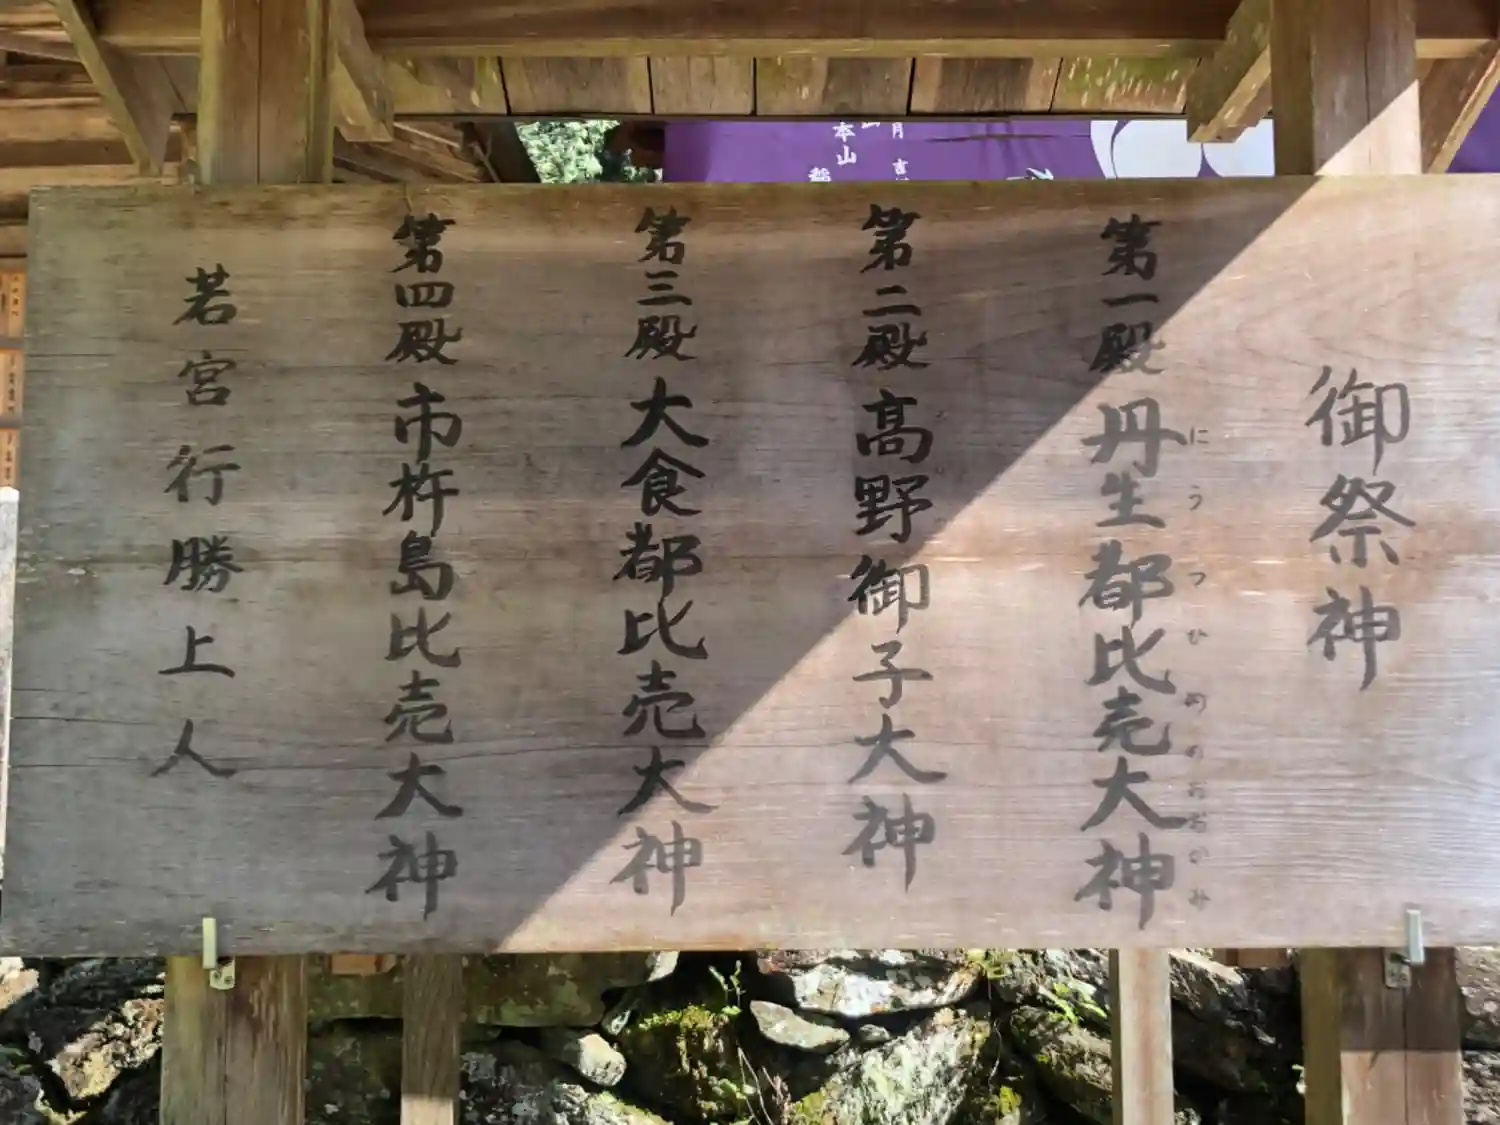 御祭神
第一殿 丹生都比売大神
にうつひめのおおかみ
第二殿 高野御子大神
第三殿 大食都比売大神
第四殿 市杵島比売大神
若宮 行勝上人
月 吉
本山